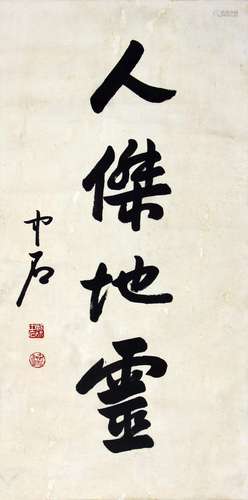 人傑地靈
中石